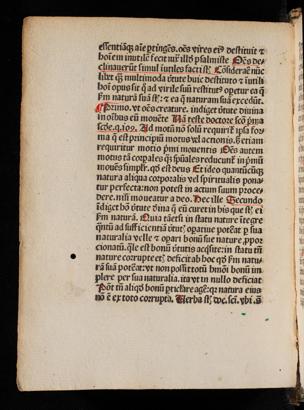 essentiāqꝫ aīe ꝑtingēs. oēs vires eiꝰ destituit ⁊
hoīem inutilē fecit iux̄ illḋ psalmiste Oēs de
clinauerūt simul iutiles facti sꝭ. Cōsiderāe nūc
libet qꝫ multimoda v̄tute huic destituto ⁊ iutili
homī opus sit qͥ ad virile suū restitutꝰ opetur ea q̄
ẜm naturā suā sꝭ: ⁊ ea q̄ naturam suā excedūt.
Primo. vt oēs creature. indiget v̄tute diuina
in oībus eū mouēte Hā teste doctore scō pͥma
scd̄e. q. 109. Ad motū nō solū requirit̄ ipsa for
ma q̄ est principiū motus vel actionis. Ꝫ etiam
requiritur motio pͥmi mouentis Oēs autem
motus tā corpales qꝫ spūales reducunt̄ in pͥmū
mouēs simplr̄. qḋ est deus Et ideo quātūcūqꝫ
natura aliqua corporalis vel spiritualis pona
tur perfecta: non potest in actum suum proce
dere. nisi moueatur a deo. Hec ille Secundo
īdiget hō v̄tute diua q̄ eū curet in his que sꝭ ei
ẜm naturā. Quia tāetsi in statu nature ītegre
q̄ntū ad sufficientiā v̄tutꝭ. opatiue poterāt ꝑ sua
naturalia velle ⁊ opari bonū sue nature ꝓpor
cionatū. q̄le est bonū v̄tutis acq̄site: in statu tn̄
nature corrupte etꝭ. deficit ab hoc qḋ ẜm natu
rā suā poterat: vt non possit totū hm̄oi bonū im
plere per sua naturalia. ita vt in nullo deficiat
Pōt tn̄ aliqḋ bonū pticlare agēr̄: qꝛ natura eiꝰ
nō ē ex toto corrupta. Verba sꝭ. do. scī. vbi. s̄